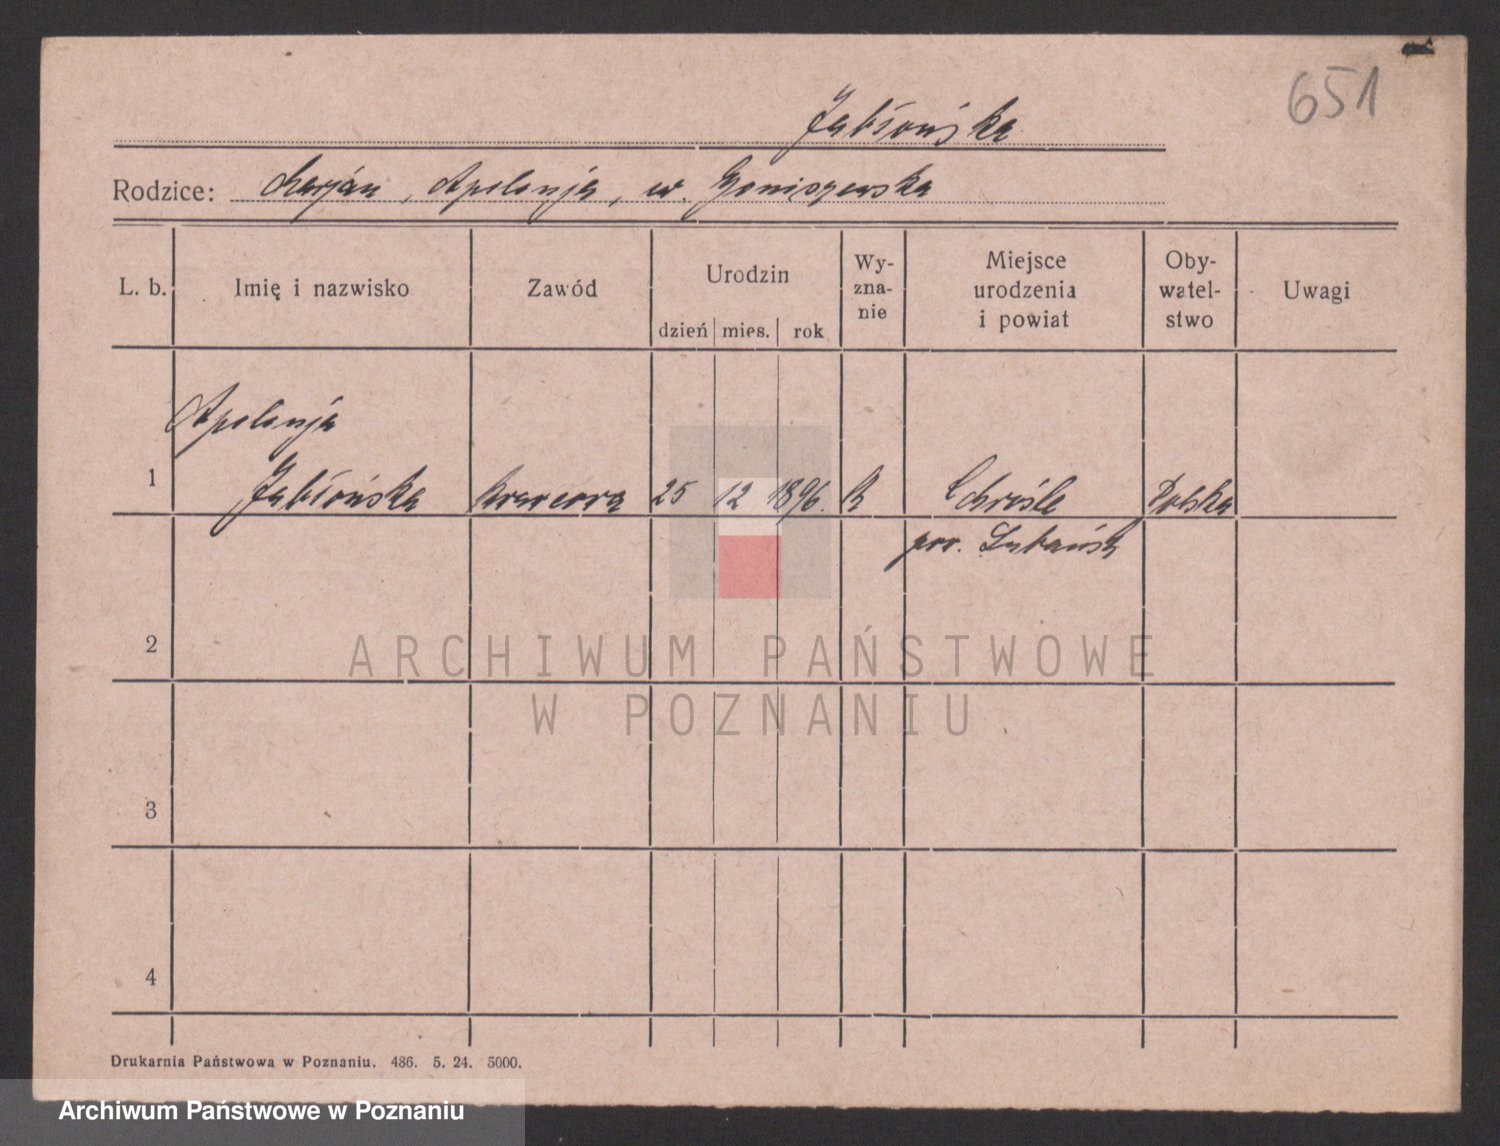 651
Jabłońska
Rodzice: Marjan, Apolonja, w. Goniszewska
L. b. Imię i nazwisko Zawód Urodzin dzień mies. rok Wy-zna-nie Miejsce urodzenia i powiat Oby-watel-stwo Uwagi
Apolonja
1 Jabłońska krawcowa 25 12 1896. R Polska
pow.
2
ARCHIWUM PAŃSTWOWE
W POZNANIU
3
4
Drukarnia Państwowa w Poznaniu. 486. 5. 24. 5000.
Archiwum Państwowe w Poznaniu